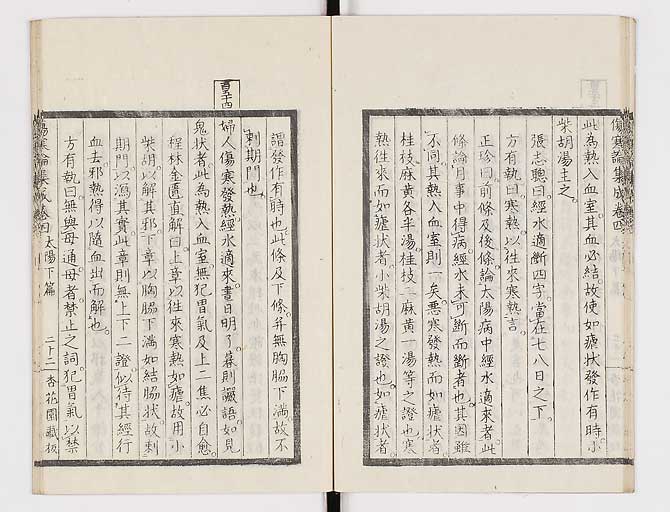 傷寒論集成卷四
此為熱入血室其血必結故使如瘧狀發作有時小
柴胡湯主之
張志聰曰經水適斷四字當在七八日之下
方有執曰寒熱以往來寒熱言
正珍曰前條及後條論太陽病中經水適來者此
條論月事中得病經水未可斷而斷者也其因雖
不同其熱入血室則一矣惡寒發熱而如瘧狀者
桂枝麻黃各半湯桂枝二麻黃一湯等之證也寒
熱往來而如瘧狀者小柴胡湯之證也如瘧狀者
百五十四
謂發作有時也此條及下條并無胸脇下滿故不
刺期門也
婦人傷寒發熱經水適來晝日明了暮則讝語如見
鬼狀者此為熱入血室無犯胃氣及上二焦必自愈
程林金匱直解曰上章以往來寒熱如瘧故用小
柴胡以解其邪下章以胸脇下滿如結胸狀故刺
期門以瀉其實此章則無上下二證似待其經行
血去邪熱得以隨血出而解也
方有執曰無與毋通毋者禁止之詞犯胃氣以禁
傷寒論集成卷四 太陽下篇 二十二 杏花園藏板